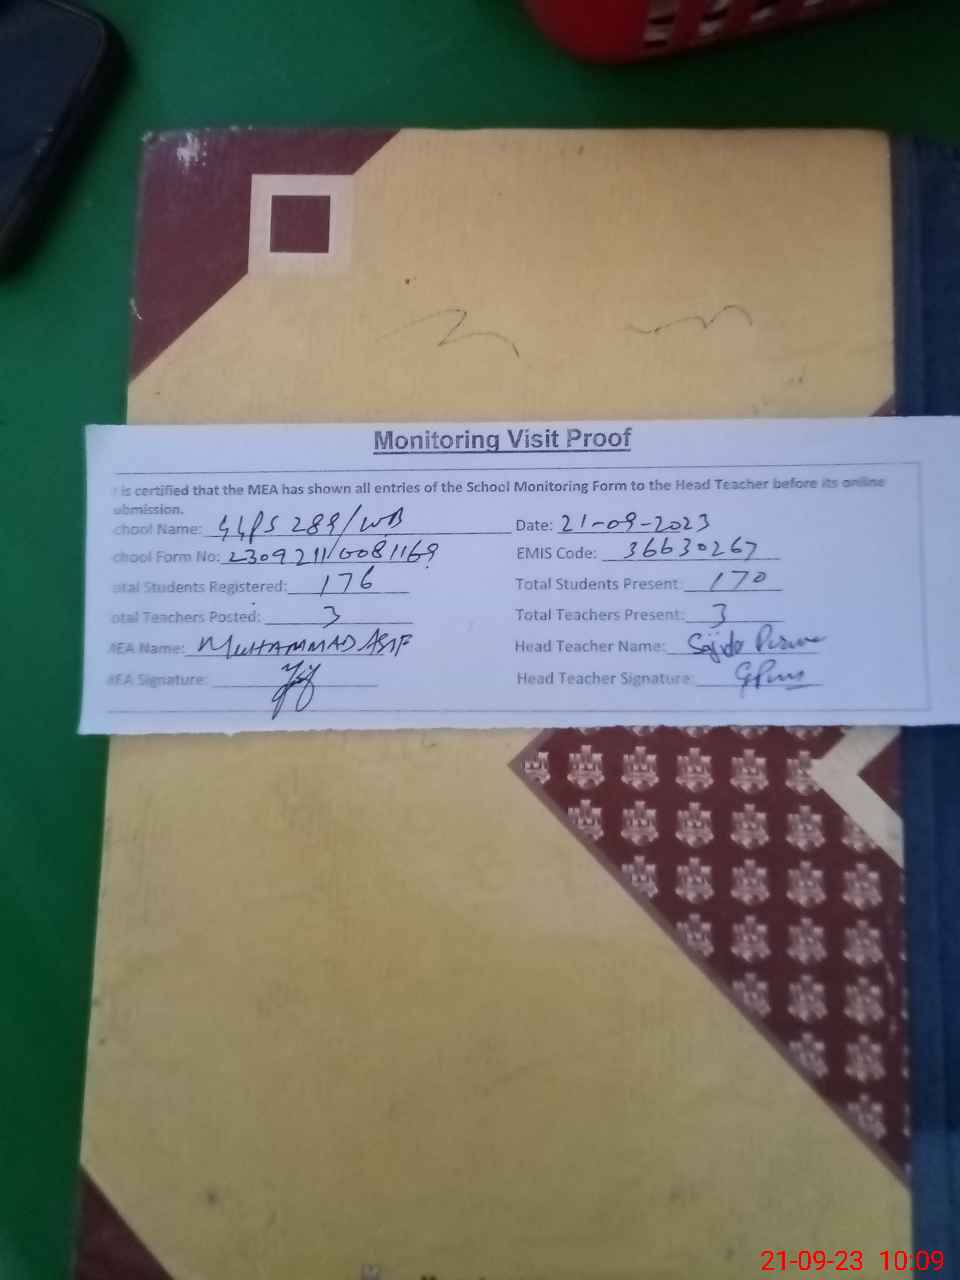 Monitoring Visit Proof
is certified that the MEA has shown all entries of the School Monitoring Form to the Head Teacher before its online
ubmission.
chool Name: GGPS 289/WB Date: 21-09-2023
chool Form No: 230921110081169 EMIS Code: 36630267
otal Students Registered: 176 Total Students Present: 170
otal Teachers Posted: 3 Total Teachers Present: 3
MEA Name: MUHAMMAD ASIF Head Teacher Name: Sajida
MEA Signature: Head Teacher Signature:
21-09-23 10:09